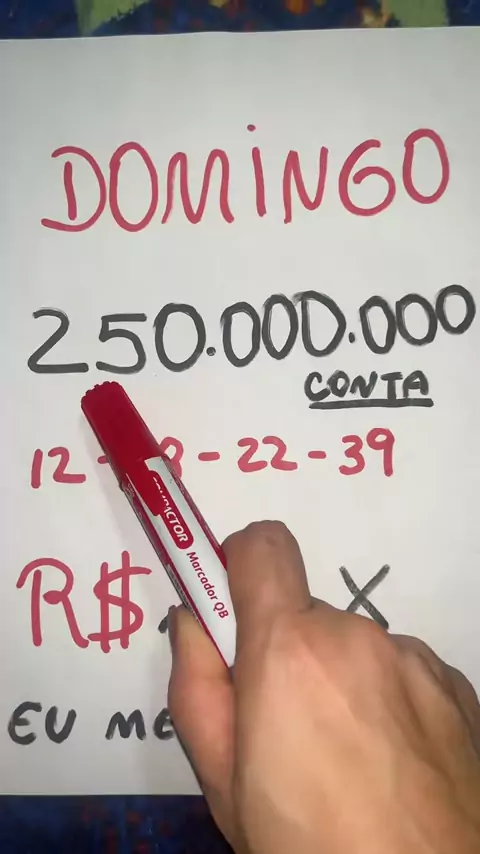 DOMINGO
250.000.000
CONTA
12 - 8 - 22 - 39
R$ X
EU ME
COMPACTOR
Marcador QB